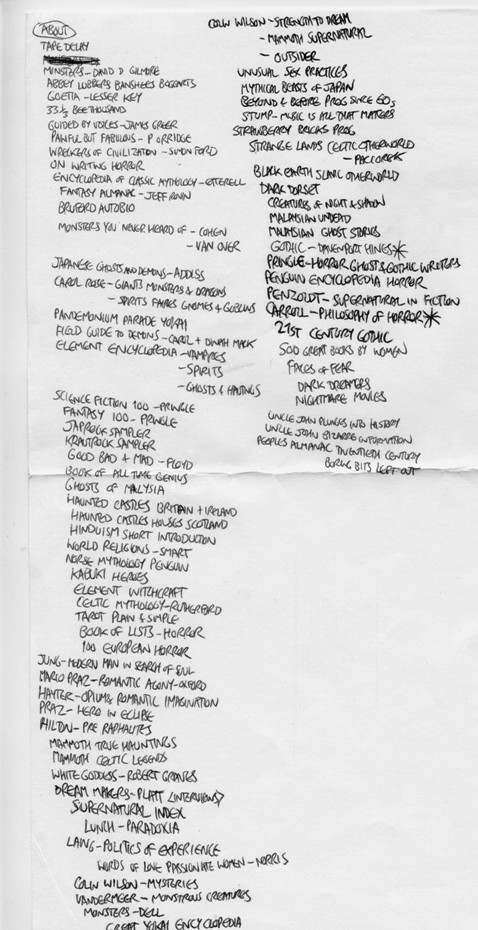 ABOUT
TAPE DELAY
MONSTERS - DAVID D GILMORE
ABBEY LUBBERS BANSHEES BOGGARTS
GOETIA - LESSER KEY
33 1/3 BEE THOUSAND
GUIDED BY VOICES - JAMES GREER
PAINFUL BUT FABULOUS - P ORRIDGE
WRECKERS OF CIVILIZATION - SIMON FORD
ON WRITING HORROR
ENCYCLOPEDIA OF CLASSIC MYTHOLOGY - COTTERELL
FANTASY ALMANAC - JEFF ROVIN
BRUFORD AUTOBIO
MONSTERS YOU NEVER HEARD OF - COHEN
- VAN OVER
JAPANESE GHOSTS AND DEMONS - ADDISS
CAROL ROSE - GIANTS MONSTERS & DRAGONS
- SPIRITS FAIRIES GNOMES & GOBLINS
PANDEMONIUM PARADE YOKAI
FIELD GUIDE TO DEMONS - CAROL + DINAH MACK
ELEMENT ENCYCLOPEDIA - VAMPIRES
- SPIRITS
- GHOSTS & HAUTINGS
SCIENCE FICTION 100 - PRINGLE
FANTASY 100 - PRINGLE
JAPROCK SAMPLER
KRAUTROCK SAMPLER
GOOD BAD & MAD - FLOYD
BOOK OF ALL TIME GENIUS
GHOSTS OF MALYSIA
HAUNTED CASTLES BRITAIN + IRELAND
HAUNTED CASTLES HOUSES SCOTLAND
HINDUISM SHORT INTRODUCTION
WORLD RELIGIONS - SMART
NORSE MYTHOLOGY PENGUIN
KABUKI HEROES
ELEMENT WITCHCRAFT
CELTIC MYTHOLOGY - RUTHERFORD
TAROT PLAIN & SIMPLE
BOOK OF LISTS - HORROR
100 EUROPEAN HORROR
JUNG - MODERN MAN IN SEARCH OF SOUL
MARIO PRAZ - ROMANTIC AGONY - OXFORD
HAYTER - OPIUM & ROMANTIC IMAGINATION
PRAZ - HERO IN ECLIPSE
HILTON - PRE RAPHALITES
MAMMOTH TRUE HAUNTINGS
MAMMOTH CELTIC LEGENDS
WHITE GODDESS - ROBERT GRAVES
DREAM MAKERS - PLATT (INTERVIEWS)
SUPERNATURAL INDEX
LUNCH - PARADOXIA
LAING - POLITICS OF EXPERIENCE
WORDS OF LOVE PASSIONATE WOMEN - NORRIS
COLIN WILSON - MYSTERIES
VANDERMEER - MONSTROUS CREATURES
MONSTERS - DELL
GREAT YOKAI ENCYCLOPEDIA
COLIN WILSON - STRENGTH TO DREAM
- MAMMOTH SUPERNATURAL
- OUTSIDER
UNUSUAL SEX PRACTICES
MYTHICAL BEASTS OF JAPAN
BEYOND & BEFORE PROG SINCE 60s
STUMP - MUSIC IS ALL THAT MATTERS
STRAWBERRY BRICKS PROG
STRANGE LANDS CELTIC OTHERWORLD
- PACIOREK
BLACK EARTH SLAVIC OTHERWORLD
DARK DORSET
CREATURES OF NIGHT & SHADOW
MALAYSIAN UNDEAD
MALAYSIAN GHOST STORIES
GOTHIC - DAVENPORT HINES *
PRINGLE - HORROR GHOST & GOTHIC WRITERS
PENGUIN ENCYCLOPEDIA HORROR
PENZOLDT - SUPERNATURAL IN FICTION
CARROLL - PHILOSOPHY OF HORROR *
21ST CENTURY GOTHIC
500 GREAT BOOKS BY WOMEN
FACES OF FEAR
DARK DREAMERS
NIGHTMARE MOVIES
UNCLE JOHN PLUNGES INTO HISTORY
UNCLE JOHN BIZARRE INFORMATION
PEOPLES ALMANAC TWENTIETH CENTURY
BORING BITS LEFT OUT